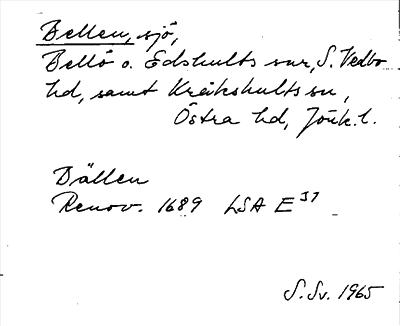 Bellen, sjö,
Bellö o. Edshults snr, S. Vedbo
hd, samt Kråkshults sn,
Östra hd, Jönk. l.
Bällen
Renov. 1689 LSA E 37
S. Sv. 1965